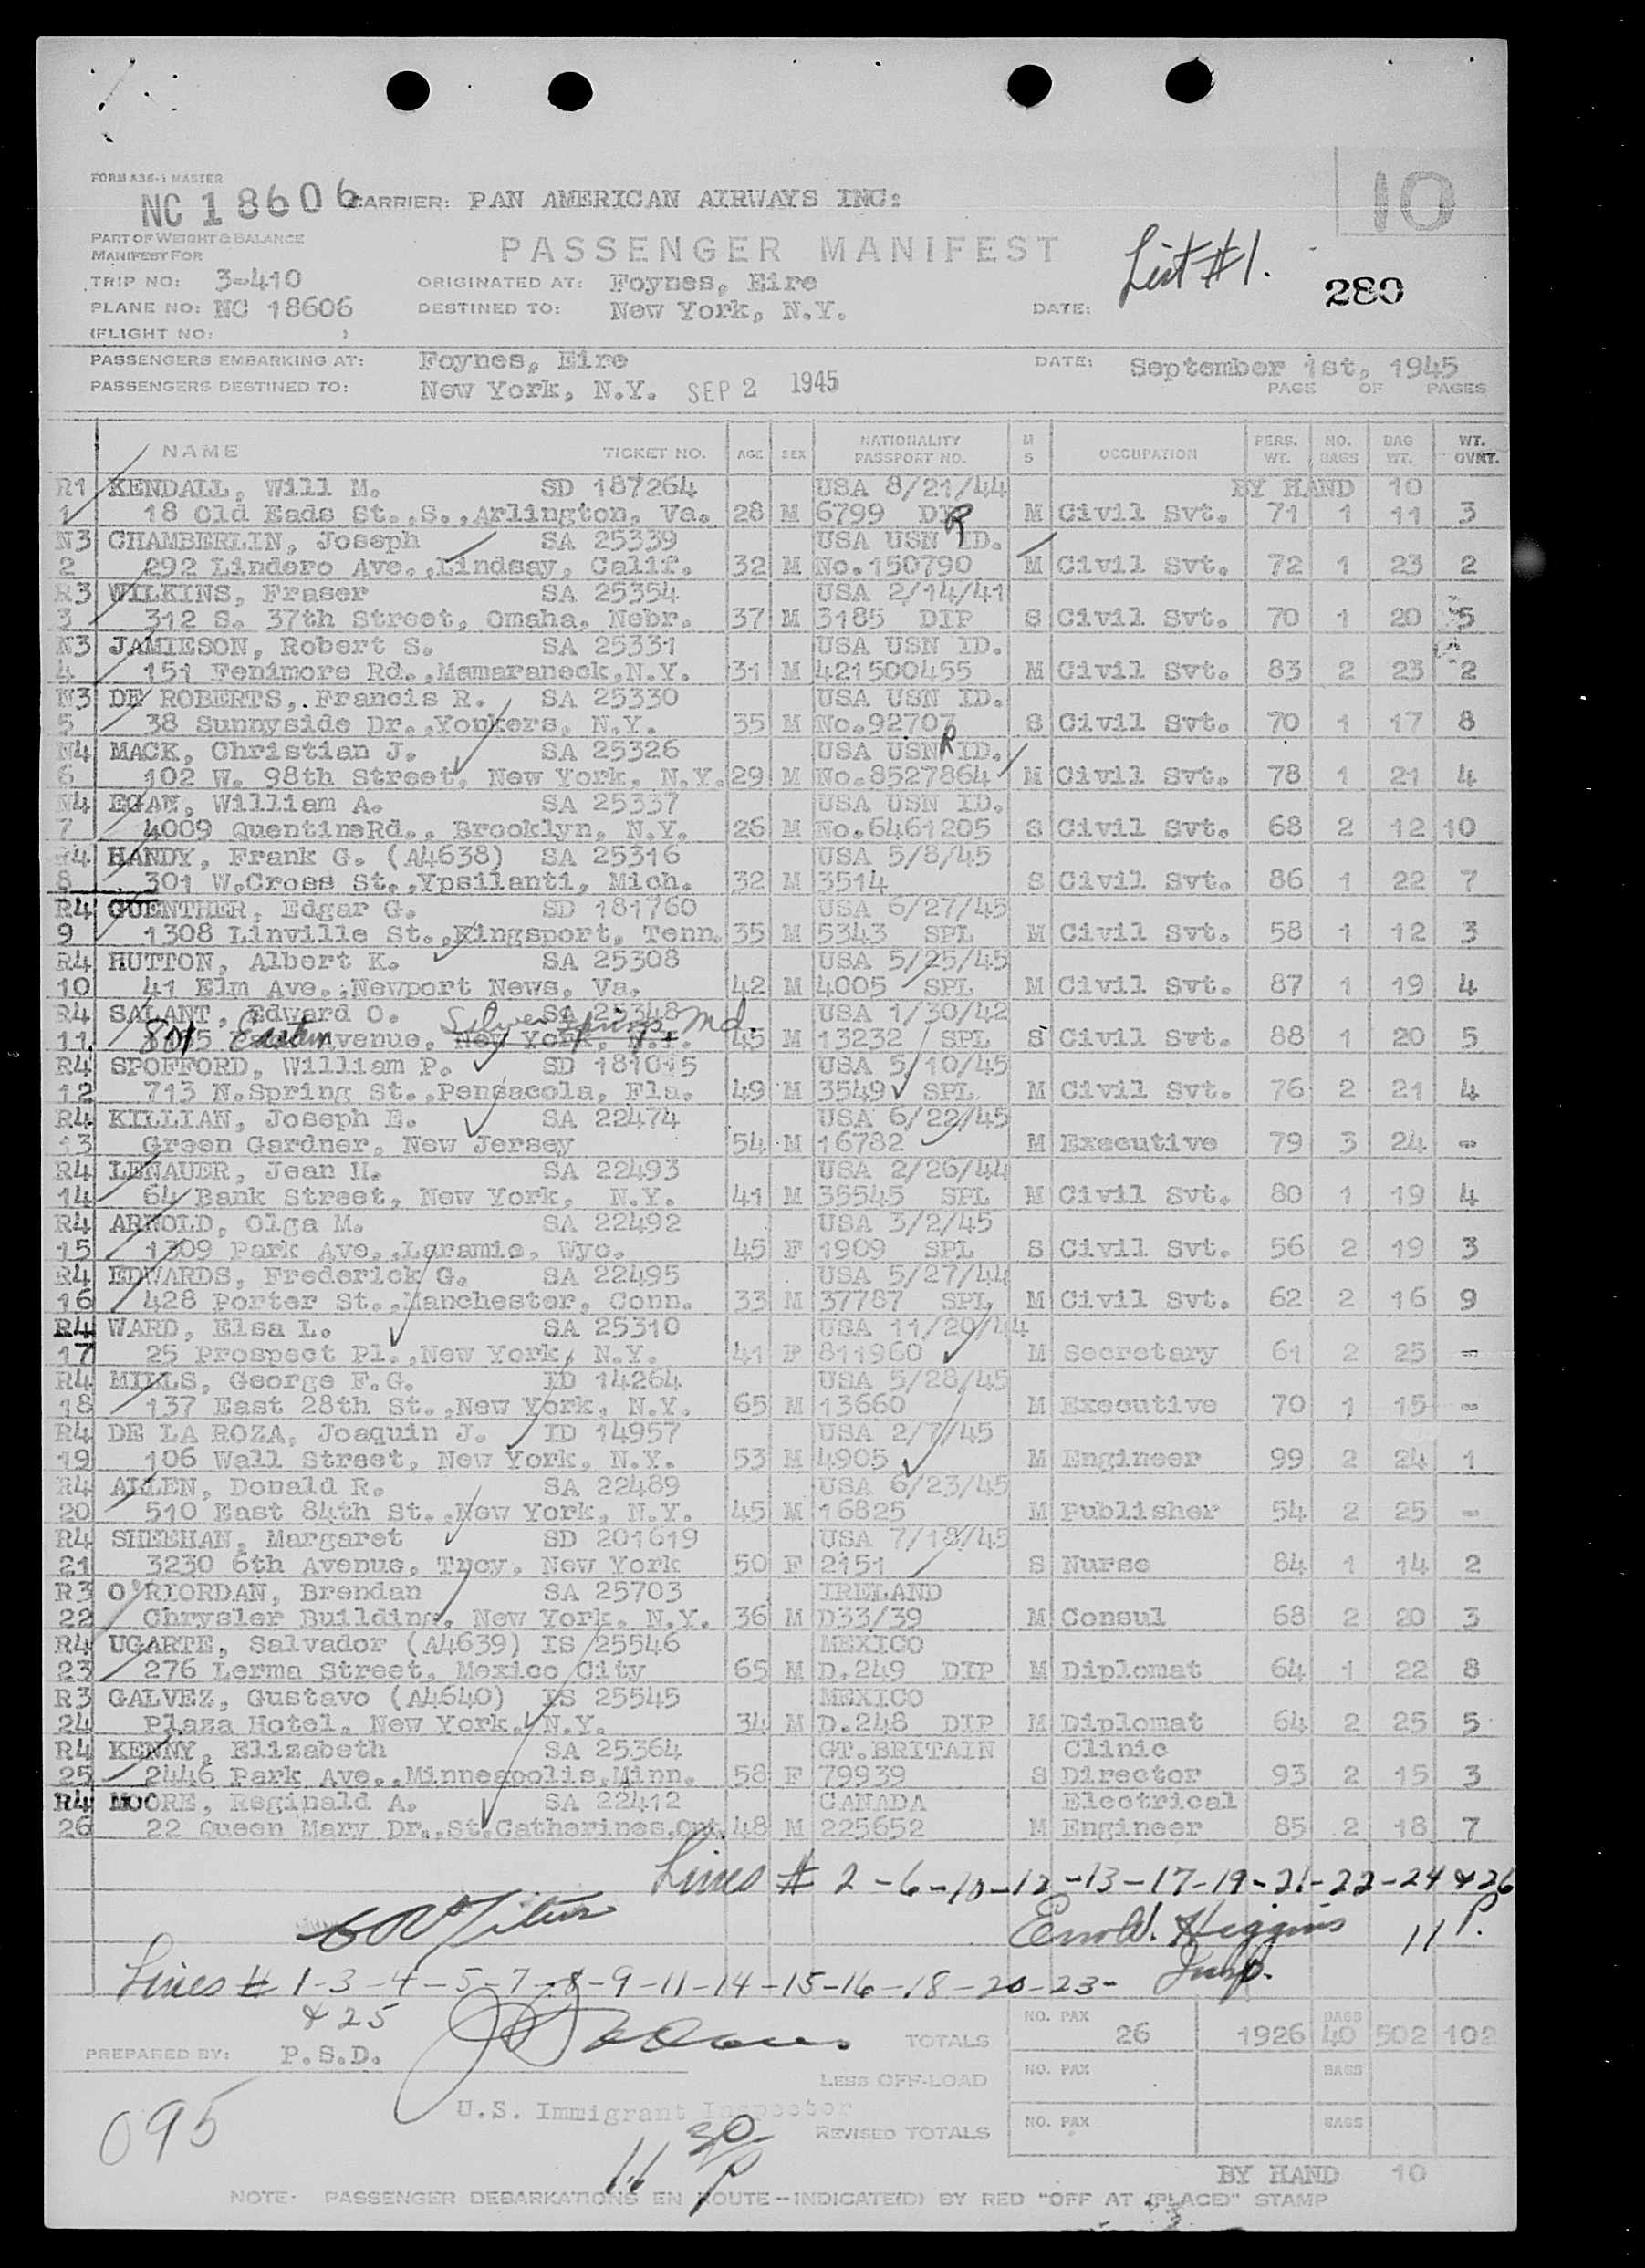 FORM A36-1 MASTER
NC 18606 CARRIER: PAN AMERICAN AIRWAYS INC: 10
PART OF WEIGHT & BALANCE
MANIFEST FOR
PASSENGER MANIFEST List #1.
TRIP NO: 3-410 ORIGINATED AT: Foynes, Eire 280
PLANE NO: NC 18606 DESTINED TO: New York, N.Y. DATE:
(FLIGHT NO: )
PASSENGERS EMBARKING AT: Foynes, Eire DATE: September 1st, 1945
PASSENGERS DESTINED TO: New York, N.Y. SEP 2 1945 PAGE OF PAGES
NAME TICKET NO. AGE SEX NATIONALITY PASSPORT NO. M S OCCUPATION PERS. WT. NO. BAGS BAG WT. WT. OVNT.
R1 KENDALL, Will M. SD 187264 USA 8/21/44 BY HAND 10
1 18 Old Eads St.,S.,Arlington, Va. 28 M 6799 DIP R M Civil Svt. 71 1 11 3
N3 CHAMBERLIN, Joseph SA 25339 USA USN ID.
2 292 Lindero Ave.,Lindsay, Calif. 32 M No.150790 M Civil Svt. 72 1 23 2
R3 WILKINS, Fraser SA 25354 USA 2/14/41
3 312 S. 37th Street, Omaha, Nebr. 37 M 3185 DIP S Civil Svt. 70 1 20 5
N3 JAMIESON, Robert S. SA 25331 USA USN ID.
4 151 Fenimore Rd.,Mamaraneck,N.Y. 31 M 421500455 M Civil Svt. 83 2 23 2
N3 DE ROBERTS, Francis R. SA 25330 USA USN ID.
5 38 Sunnyside Dr.,Yonkers, N.Y. 35 M No.92707 S Civil Svt. 70 1 17 8
N4 MACK, Christian J. SA 25326 USA USN R ID.
6 102 W. 98th Street, New York, N.Y. 29 M No.8527864 M Civil Svt. 78 1 21 4
N4 EGAN, William A. SA 25337 USA USN ID.
7 4009 QuentinsRd., Brooklyn, N.Y. 26 M No.6461205 S Civil Svt. 68 2 12 10
R4 HANDY, Frank G. (A4638) SA 25316 USA 5/8/45
8 301 W.Cross St.,Ypsilanti, Mich. 32 M 3514 S Civil Svt. 86 1 22 7
R4 GUENTHER, Edgar G. SD 181760 USA 6/27/45
9 1308 Linville St.,Kingsport, Tenn. 35 M 5343 SPL M Civil Svt. 58 1 12 3
R4 HUTTON, Albert K. SA 25308 USA 5/25/45
10 41 Elm Ave.,Newport News, Va. 42 M 4005 SPL M Civil Svt. 87 1 19 4
R4 SALANT, Edward O. SA 25348 Silver Springs, Md. USA 1/30/42
11 Avenue, New York, N.Y. 45 M 13232 SPL S Civil Svt. 88 1 20 5
R4 SPOFFORD, William P. SD 181015 USA 5/10/45
12 713 N.Spring St.,Pensacola, Fla. 49 M 3549 SPL M Civil Svt. 76 2 21 4
R4 KILLIAN, Joseph E. SA 22474 USA 6/22/45
13 Green Gardner, New Jersey 54 M 16782 M Executive 79 3 24 -
R4 LENAUER, Jean H. SA 22493 USA 2/26/44
14 64 Bank Street, New York, N.Y. 41 M 35545 SPL M Civil Svt. 80 1 19 4
R4 ARNOLD, Olga M. SA 22492 USA 3/2/45
15 1309 Park Ave.,Laramie, Wyo. 45 F 1909 SPL S Civil Svt. 56 2 19 3
R4 EDWARDS, Frederick G. SA 22495 USA 5/27/44
16 428 Porter St.,Manchester, Conn. 33 M 37787 SPL M Civil Svt. 62 2 16 9
R4 WARD, Elsa L. SA 25310 USA 11/20/44
17 25 Prospect Pl.,New York, N.Y. 41 F 811960 M Secretary 61 2 25 -
R4 MILLS, George F.G. ID 14264 USA 5/28/45
18 137 East 28th St.,New York, N.Y. 65 M 13660 M Executive 70 1 15 -
R4 DE LA ROZA, Joaquin J. ID 14957 USA 2/7/45
19 106 Wall Street, New York, N.Y. 53 M 4905 M Engineer 99 2 24 1
R4 ALLEN, Donald R. SA 22489 USA 6/23/45
20 510 East 84th St.,New York, N.Y. 45 M 16825 M Publisher 54 2 25 -
R4 SHEEHAN, Margaret SD 201619 USA 7/18/45
21 3230 6th Avenue, Troy, New York 50 F 2151 S Nurse 84 1 14 2
R3 O'RIORDAN, Brendan SA 25703 IRELAND
22 Chrysler Building, New York, N.Y. 36 M D33/39 M Consul 68 2 20 3
R4 UGARTE, Salvador (A4639) IS 25546 MEXICO
23 276 Lerma Street, Mexico City 65 M D.249 DIP M Diplomat 64 1 22 8
R3 GALVEZ, Gustavo (A4640) IS 25545 MEXICO
24 Plaza Hotel, New York, N.Y. 34 M D.248 DIP M Diplomat 64 2 25 5
R4 KENNY, Elizabeth SA 25364 GT.BRITAIN Clinic
25 2446 Park Ave.,Minneapolis,Minn. 58 F 79939 S Director 93 2 15 3
R4 MOORE, Reginald A. SA 22412 CANADA Electrical
26 22 Queen Mary Dr.,St.Catherines,Ont. 48 M 225652 M Engineer 85 2 18 7
Lines # 2-6-10-12-13-17-19-21-22-24 & 26
Higgins 11 P.
Insp.
Lines # 1-3-4-5-7-8-9-11-14-15-16-18-20-23-
& 25
TOTALS NO. PAX 26 1926 BAGS 40 502 102
PREPARED BY: P.S.D.
LESS OFF-LOAD NO. PAX BAGS
U.S. Immigrant Inspector
095
REVISED TOTALS NO. PAX BAGS
11 30 P
BY HAND 10
NOTE: PASSENGER DEBARKATIONS EN ROUTE - INDICATE(D) BY RED "OFF AT (PLACE)" STAMP